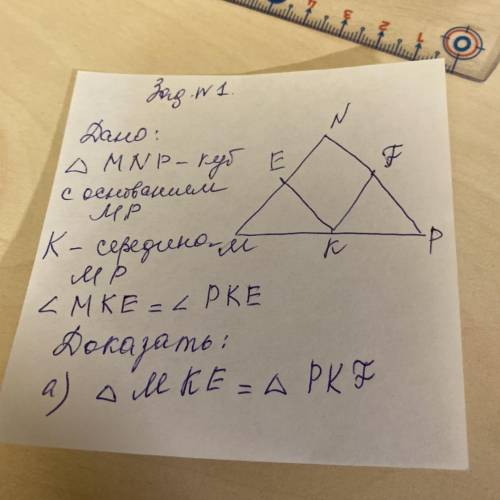 Зад. №1.
Дано:
△ MNP – куб
с основанием
MP
K – середина
MP
∠ MKE = ∠ PKE
Доказать:
а) △ MKE = △ PKF
N
E
F
M
K
P
1
2
3
4